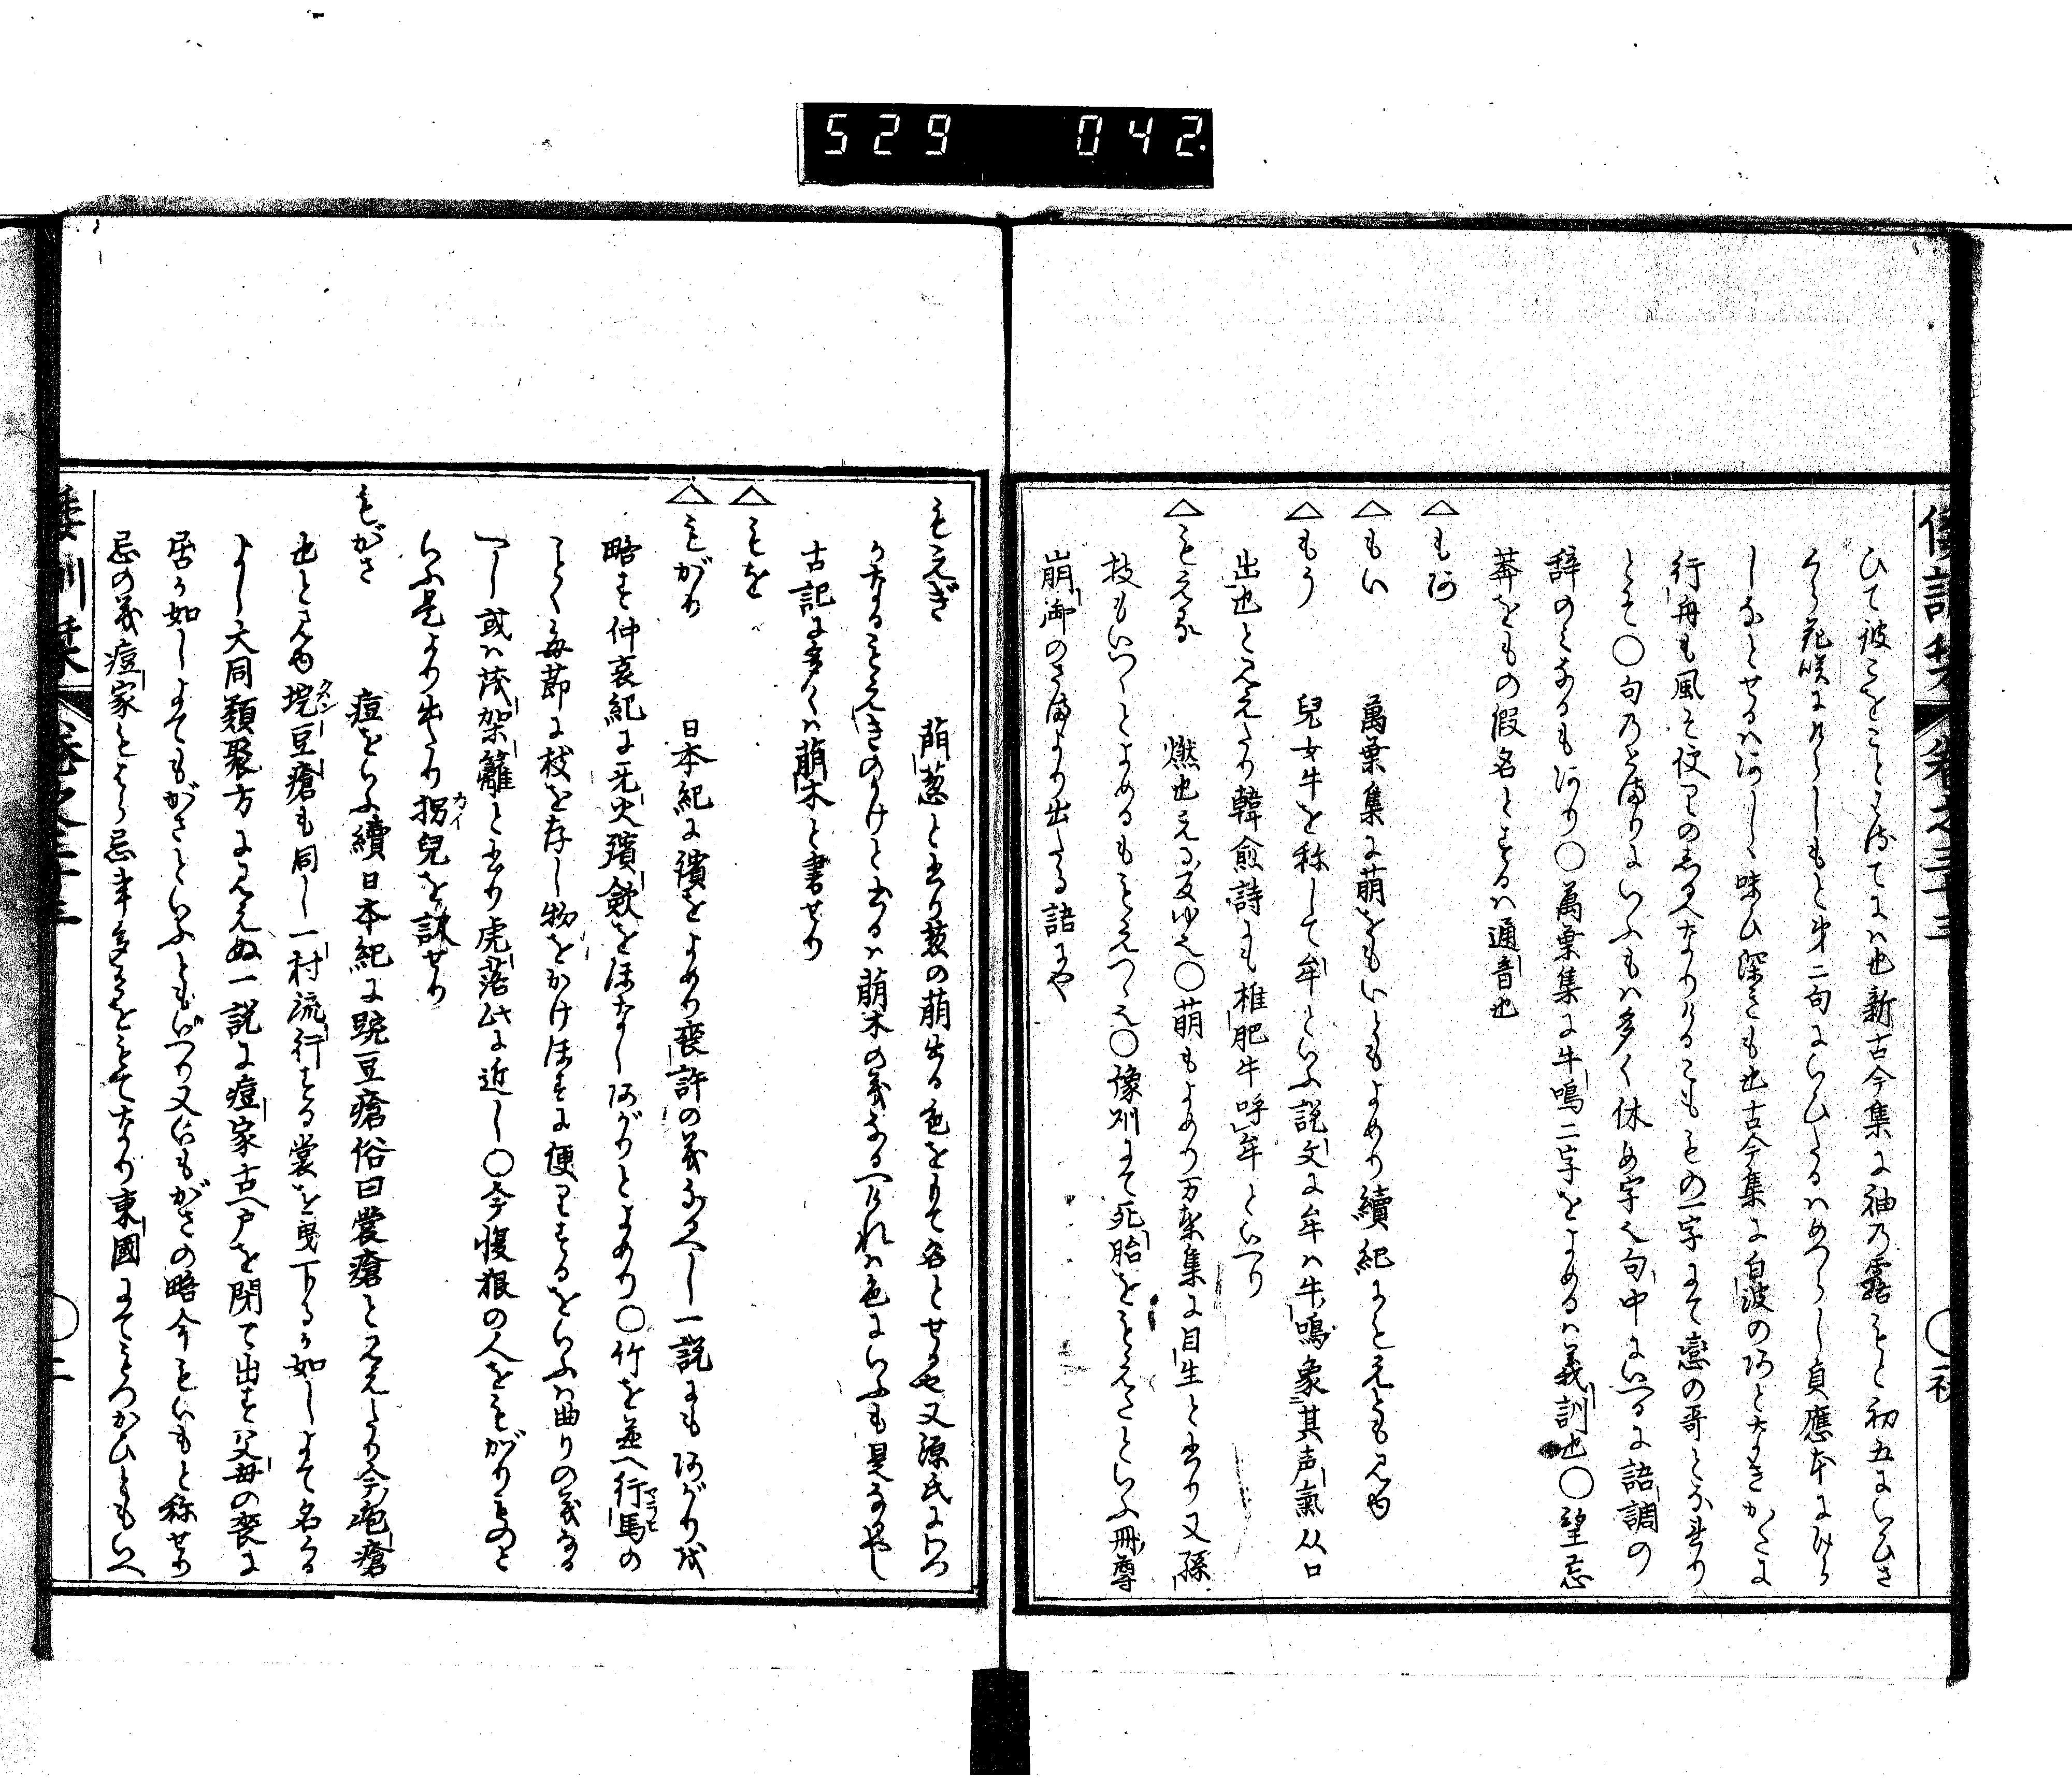 529 042
倭訓栞 卷之三十三
ひて彼こをこともほてにハ也新古今集に袖乃露もと初五にいひさ
くら花咲にけらしもと第二句にいひたるハめつらし貞應本にみら
しなとせるハあしく味ひ深きも也古今集に白波のあとなきかたに
行舟も風そ便りのしるへなりけるこももの一字にて戀の哥となれり
とそ〇句乃とまりにいふもハ多く休め字也句中にいへるに語調の
辞のミなるもあり〇萬葉集に牛鳴二字をよめるハ義訓也〇望忌
莽をもの假名とするハ通音也
△もあ
△もい 萬葉集に萌をもいともよめり續紀にもえとも見ゆ
△もう 兒女牛を称して牟といふ説文に牟ハ牛鳴象其声氣从口
出也と見えたり韓愈詩も椎肥牛呼牟といへり
△もえる 燃也える反ゆ也〇萌もよめり万葉集に目生と書り又孫
枝もいつゝとよめるももえつゝ也〇豫州にて死胎をもえたといふ冊尊
崩御のさまより出たる語にや
もえぎ 萌葱と書り葱の萌出る色をもて名とせる也又源氏にいつ
うなるもえきのうけと書るハ萌木の義なるへけれハ色にいふも見なやし
古記に多くハ萌木と書せり
△もを
△もがり 日本紀に殯をよめり喪許の義なるへし一説にもあがり成
略す仲哀紀に无火殯斂をほなしあがりとよめり〇竹を並へ行馬の
ことく毎節に枝を存し物をかけほすに便りするをいふハ曲りの義なる
へし或ハ茂架籬と書り虎落此に近し〇今愎狠の人をもがりものと
いふ是より出たり拐兒を訳せり
もがさ 痘をいふ續日本紀に豌豆瘡俗曰裳瘡と見えたり今疱瘡
也と見ゆ豌豆瘡も同し一村流行する裳を曳下るか如しよて名くる
よし大同類聚方に見えぬ一説に痘家古へ戸を閉て出す父母の喪に
居か如しよてもがさといふともいへり又いもがさの略今もいもと称せり
忌の義痘家もはら忌事多きをもてなり東國にてもつかひともいへ
倭訓栞 卷之三十三 〇二